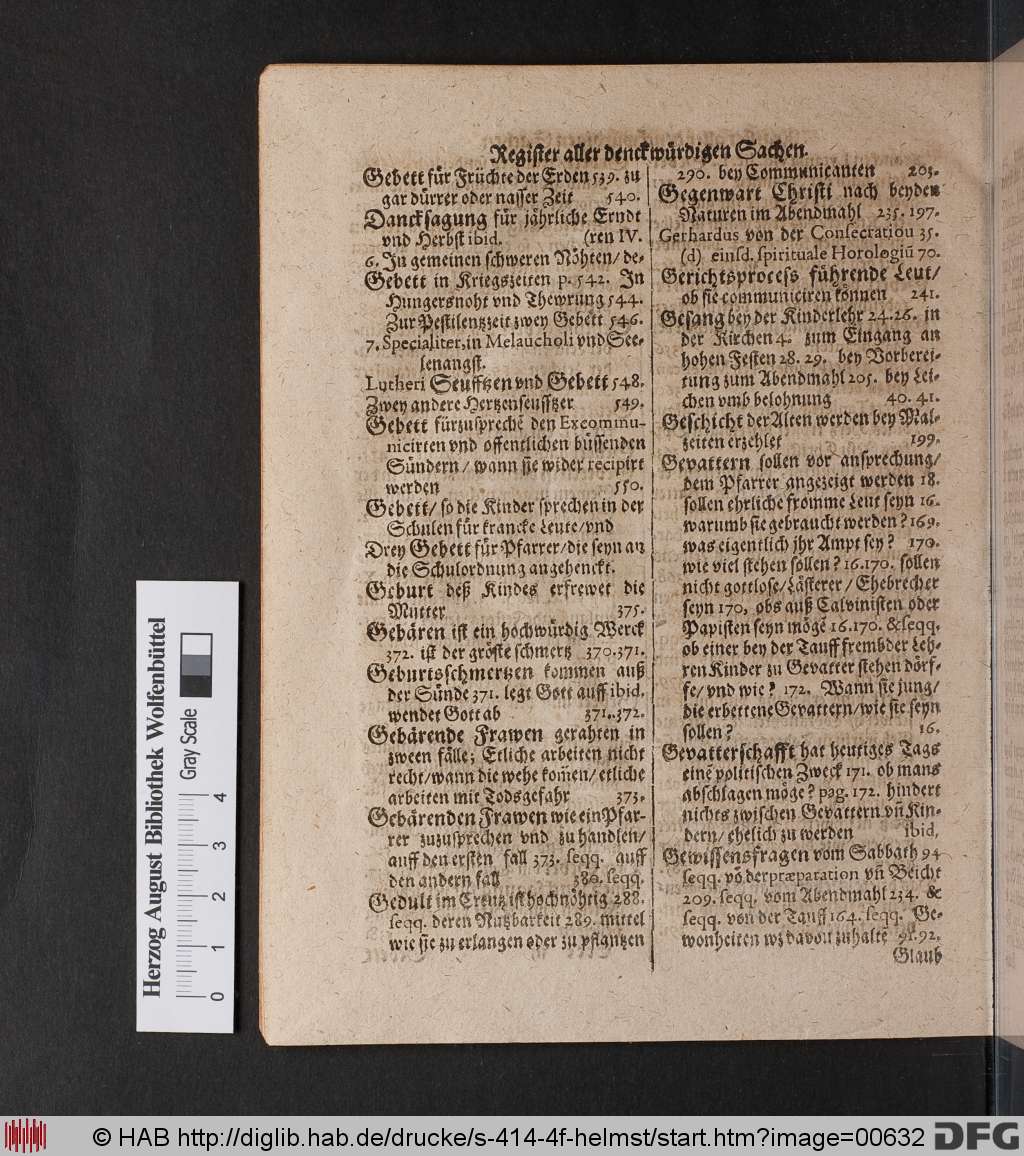 Register aller denckwürdigen Sachen.
Gebett für Früchte der Erden 539. zu
gar dürrer oder nasser Zeit 540.
Dancksagung für jährliche Erndt
vnd Herbst ibid. (ren IV.
6. In gemeinen schweren Nöhten/ de-
Gebett in Kriegszeiten p. 542. In
Hungersnoht vnd Thewrung 544.
Zur Pestilentzzeit zwey Gebett 546.
7. Specialiter, in Melancholi vnd See-
lenangst.
Lutheri Seufftzen vnd Gebett 548.
Zwey andere Hertzenseufftzer 549.
Gebett fürzusprechē den Excommu-
nicirten vnd offentlichen büssenden
Sündern / wann sie wider recipirt
werden 550.
Gebett/ so die Kinder sprechen in der
Schulen für krancke Leute/ vnd
Drey Gebett für Pfarrer/ die seyn an
die Schulordnung angehenckt.
Geburt deß Kindes erfrewet die
Mutter 375.
Gebären ist ein hochwürdig Werck
372. ist der gröste schmertz 370.371.
Geburtsschmertzen kommen auß
der Sünde 371. legt Gott auff ibid.
wendet Gott ab 371.372.
Gebärende Frawen gerahten in
zween fälle; Etliche arbeiten nicht
recht/ wann die wehe kom̃en/ etliche
arbeiten mit Todsgefahr 373.
Gebärenden Frawen wie ein Pfar-
rer zuzusprechen vnd zu handlen/
auff den ersten fall 373. seqq. auff
den andern fall 380. seqq.
Gedult im Creutz ist hochnöhtig 288.
seqq. deren Nutzbarkeit 289. mittel
wie sie zu erlangen oder zu pflantzen
290. bey Communicanten 203.
Gegenwart Christi nach beyden
Naturen im Abendmahl 235. 197.
Gerhardus von der Consecration 35.
(d) einsd. spirituale Horologiū 70.
Gerichtsprocess führende Leut/
ob sie communiciren können 241.
Gesang bey der Kinderlehr 24.26. in
der Kirchen 4. zum Eingang an
hohen Festen 28. 29. bey Vorberei-
tung zum Abendmahl 205. bey Lei-
chen vmb belohnung 40. 41.
Geschicht der Alten werden bey Mal-
zeiten erzehlet 199.
Gevattern sollen vor ansprechung/
dem Pfarrer angezeigt werden 18.
sollen ehrliche fromme Leut seyn 16.
warumb sie gebraucht werden? 169.
was eigentlich jhr Ampt sey? 170.
wie viel stehen sollen? 16.170. sollen
nicht gottlose/ Lästerer/ Ehebrecher
seyn 170, obs auß Calvinisten oder
Papisten seyn mögē 16.170. & seqq.
ob einer bey der Tauff frembder Leh-
ren Kinder zu Gevatter stehen dörf-
fe/ vnd wie? 172. Wann sie jung/
die erbettene Gevattern/ wie sie seyn
sollen? 16.
Gevatterschafft hat heutiges Tags
einē politischen Zweck 171. ob mans
abschlagen möge? pag. 172. hindert
nichts zwischen Gevattern vn̄ Kin-
dern/ ehelich zu werden ibid,
Gewissensfragen vom Sabbath 94
seqq. võ der præparation vñ Beicht
209. seqq. vom Abendmahl 234. &
seqq. von der Tauff 164. seqq. Ge-
wonheiten wz davon zuhaltē 91.92.
Glaub
Herzog August Bibliothek Wolfenbüttel
Gray Scale
0 1 2 3 4
© HAB http://diglib.hab.de/drucke/s-414-4f-helmst/start.htm?image=00632
DFG